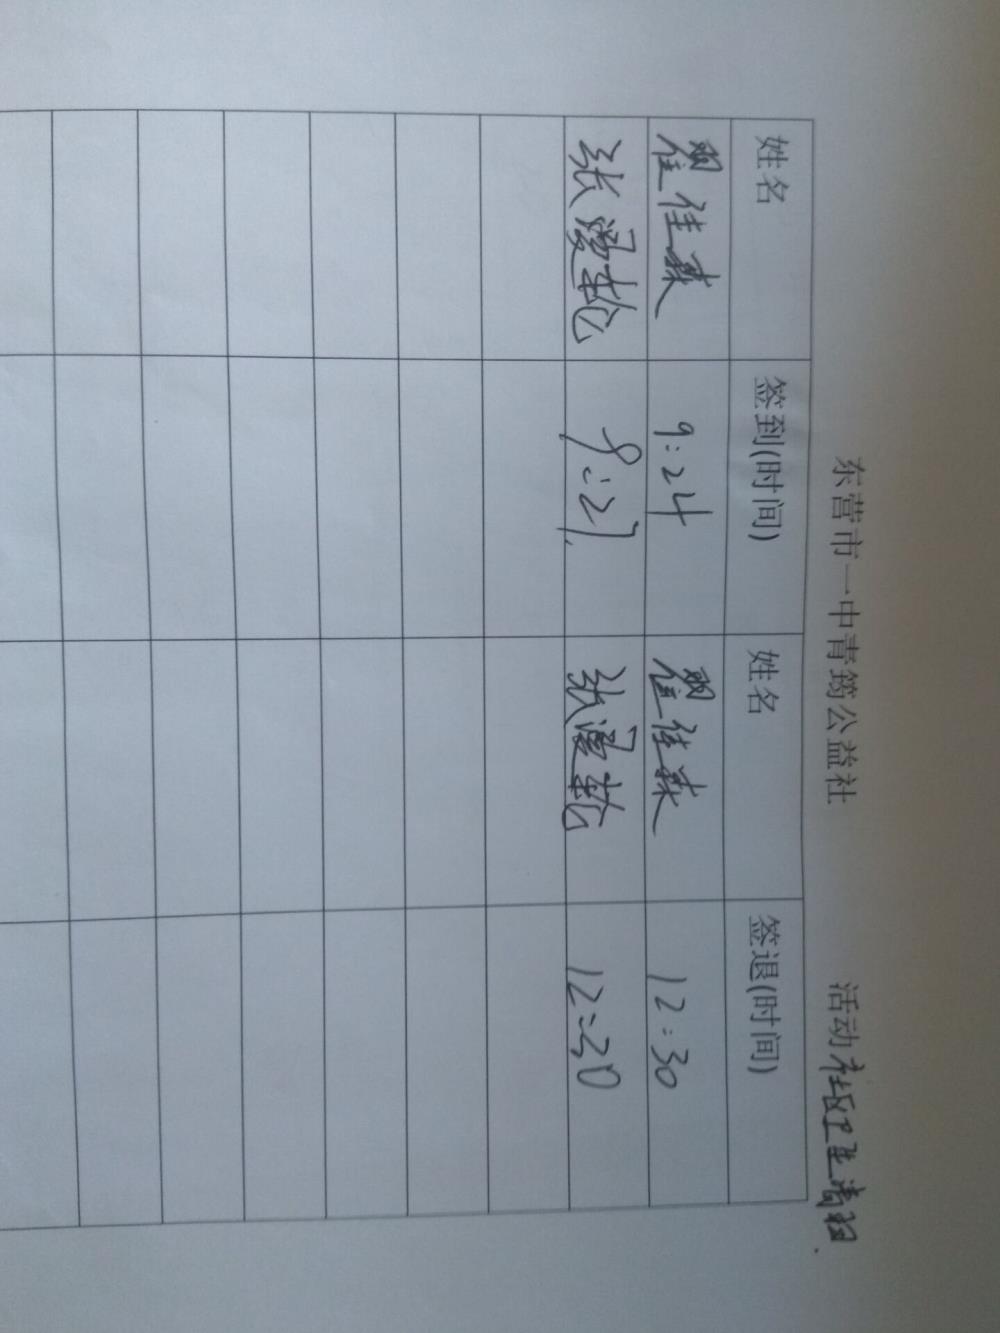 东营市一中青筠公益社 活动社区卫生清扫.
姓名 签到(时间) 姓名 签退(时间)
翟佳森 9:24 翟佳森 12:30
张漫乾 9:27 张漫乾 12:30